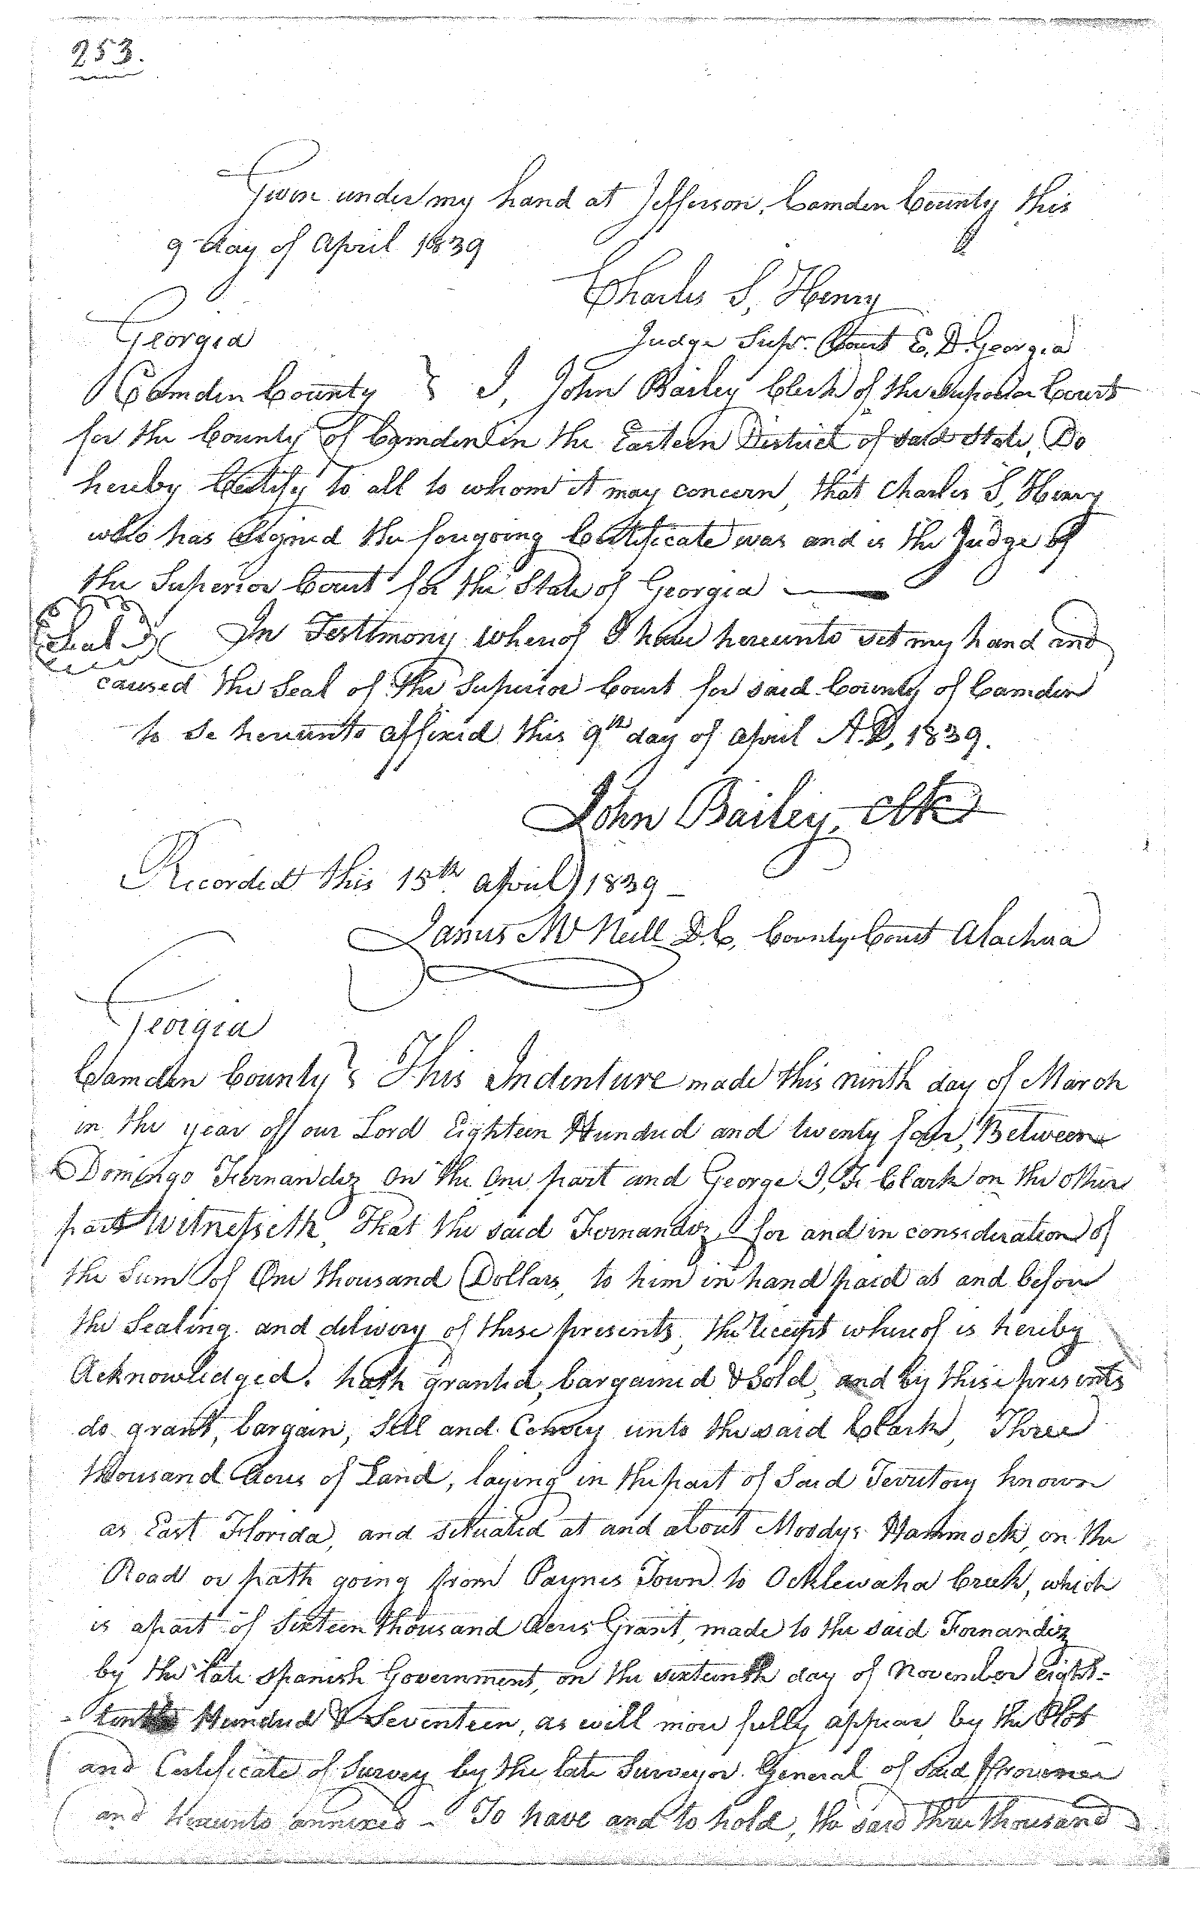 253.
Given under my hand at Jefferson, Camden County this
9 day of April 1839
Charles S, Henry
Judge Supr. Court E, D. Georgia
Georgia
Camden County } I, John Bailey Clerk of the superior Court
for the County of Camden in the Eastern District of said State, Do
hereby Certify to all to whom it may concern, that Charles S, Henry
who has signed the foregoing Certificate was and is the Judge of
the Superior Court for the State of Georgia —
Seal In Testimony whereof I have hereunto set my hand and
caused the Seal of the Superior Court for said County of Camden
to be hereunto affixed this 9th day of April A.D, 1839.
John Bailey, Clk
Recorded this 15th April 1839 _
James McNeill D.C, County Court Alachua
Georgia
Camden County } This Indenture made this ninth day of March
in the year of our Lord Eighteen Hundred and twenty four, Between
Domingo Fernandez on the one part and George I, F. Clark on the other
part Witnesseth, That the said Fernandez, for and in consideration of
the Sum of One thousand Dollars, to him in hand paid at and before
the Sealing and delivery of these presents, the receipt whereof is hereby
Acknowledged. hath granted, bargained & Sold, and by these presents
do grant, bargain, Sell and Convey unto the said Clark, Three
thousand Acres of Land, laying in the part of Said Territory known
as East Florida, and situated at and about Moodys Hammock, on the
Road or path going from Paynes Town to Ocklewaha Creek, which
is apart of Sixteen thousand Acres Grant, made to the said Fernandez
by the late Spanish Government, on the sixteenth day of November eight-
-teen Hundred & Seventeen, as will more fully appear by the Plot
and Certificate of Survey by the late Surveyor General of Said Province
and hereunto annexed - To have and to hold, the said three thousand